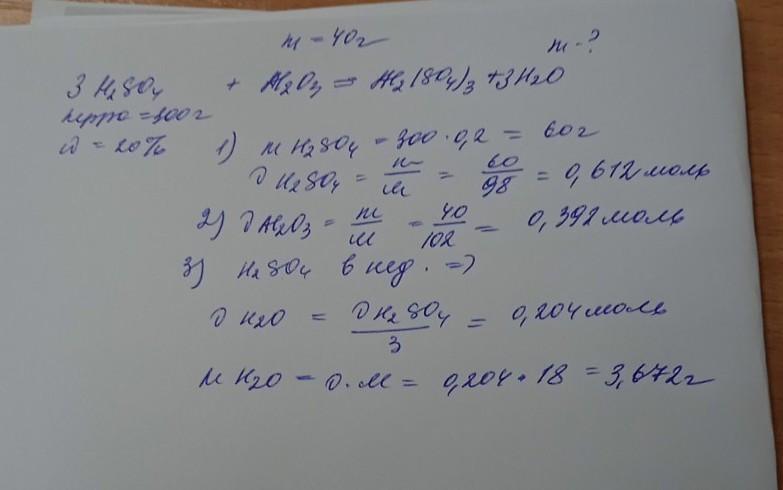 m = 40г
m - ?
3 H₂SO₄ + Al₂O₃ = Al₂(SO₄)₃ + 3H₂O
mр-ра = 300г
ω = 20%
1) m H₂SO₄ = 300 · 0,2 = 60г
ν H₂SO₄ = m/M = 60/98 = 0,612 моль
2) ν Al₂O₃ = m/M = 40/102 = 0,392 моль
3) H₂SO₄ в нед. =>
ν H₂O = ν H₂SO₄/3 = 0,204 моль
m H₂O = ν · M = 0,204 · 18 = 3,672г